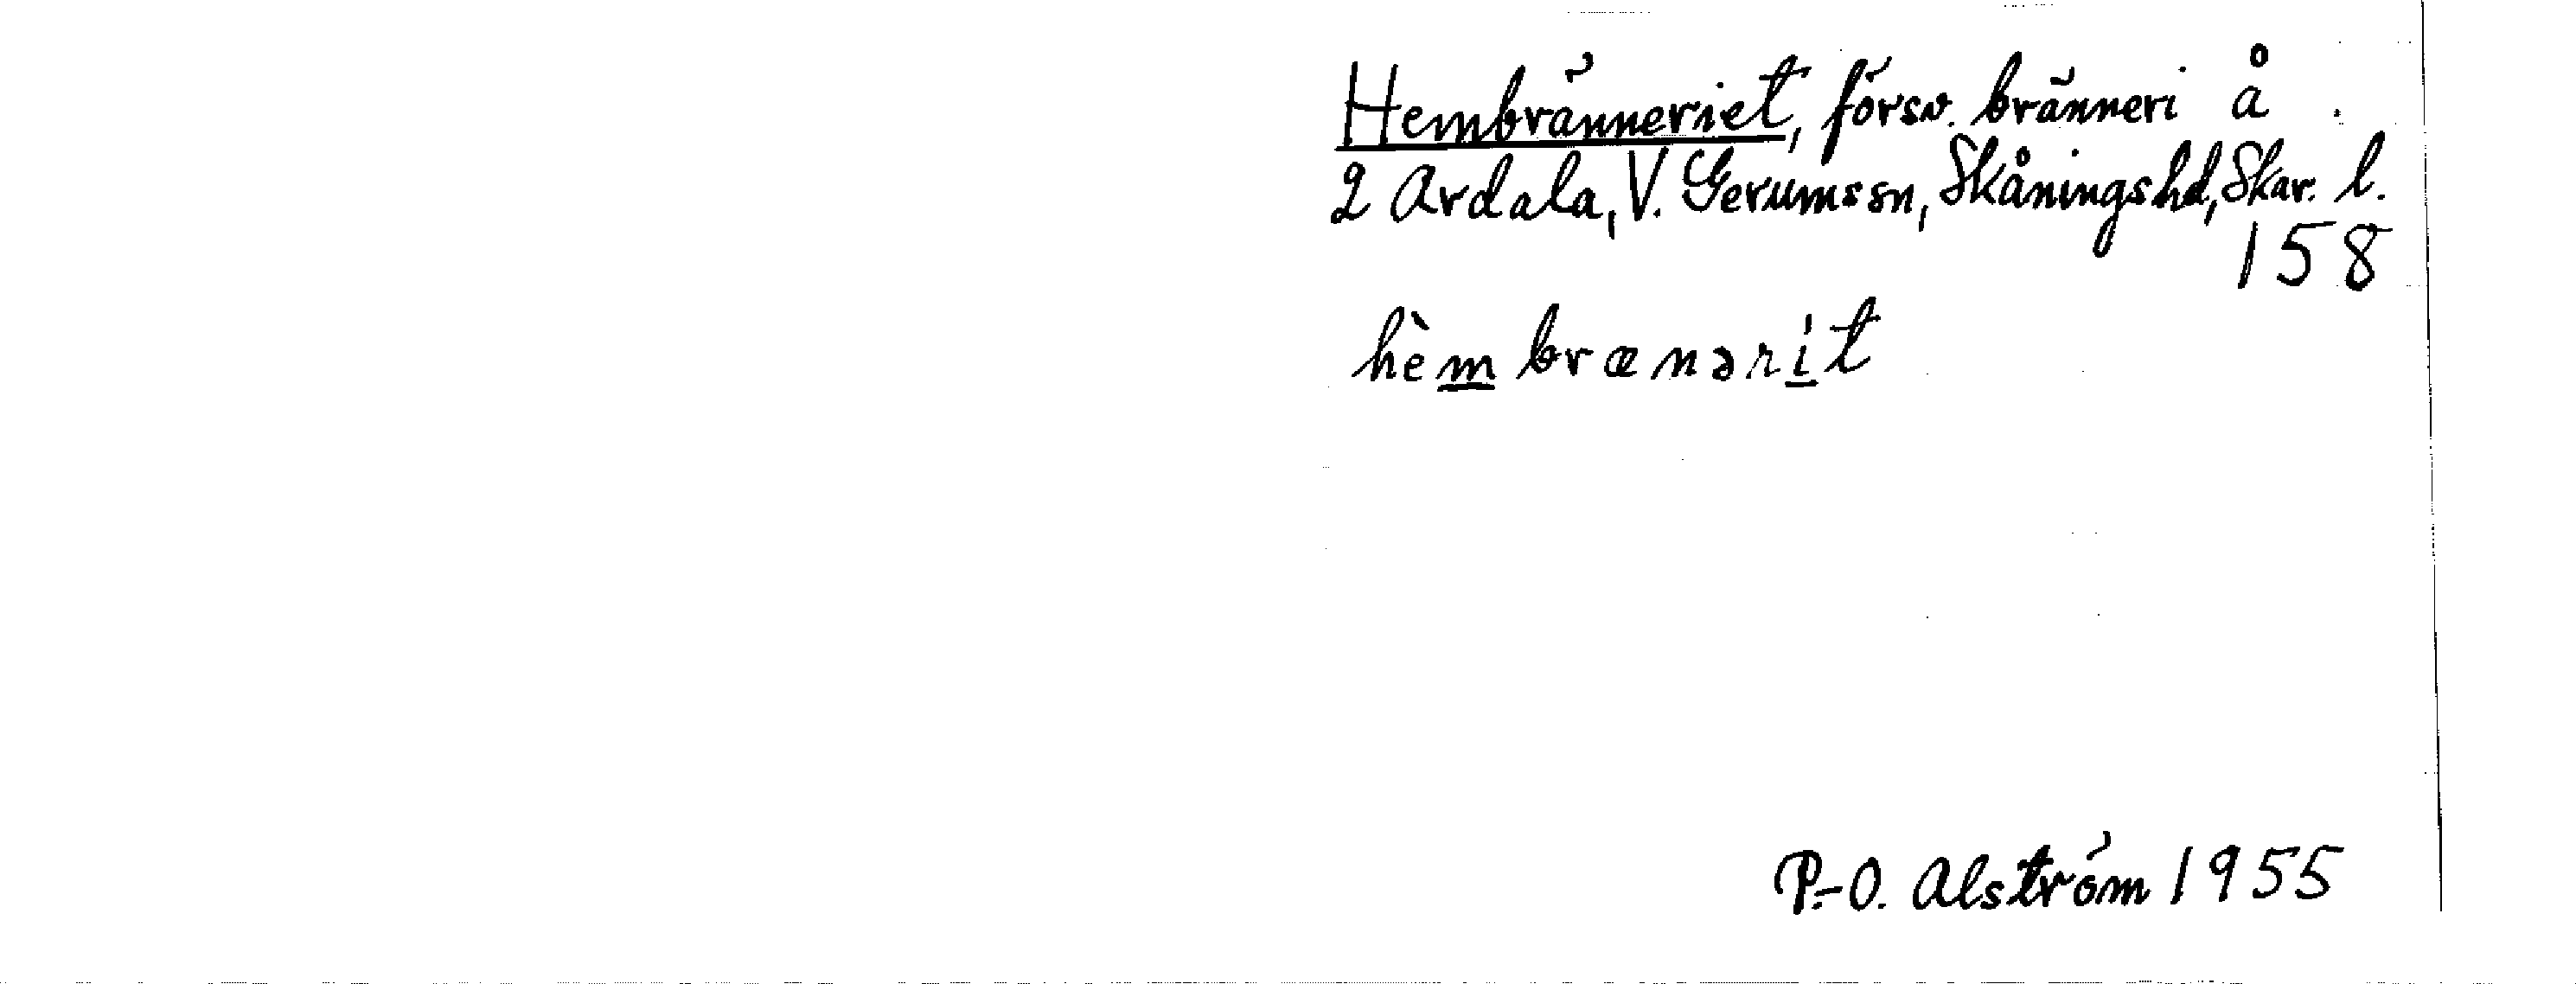 Hembränneriet, försv. bränneri å
2 Ardala, V. Gerumssn, Skåningshd, Skar. l.
158
hèmbrænərít
P.-O. Alström 1955